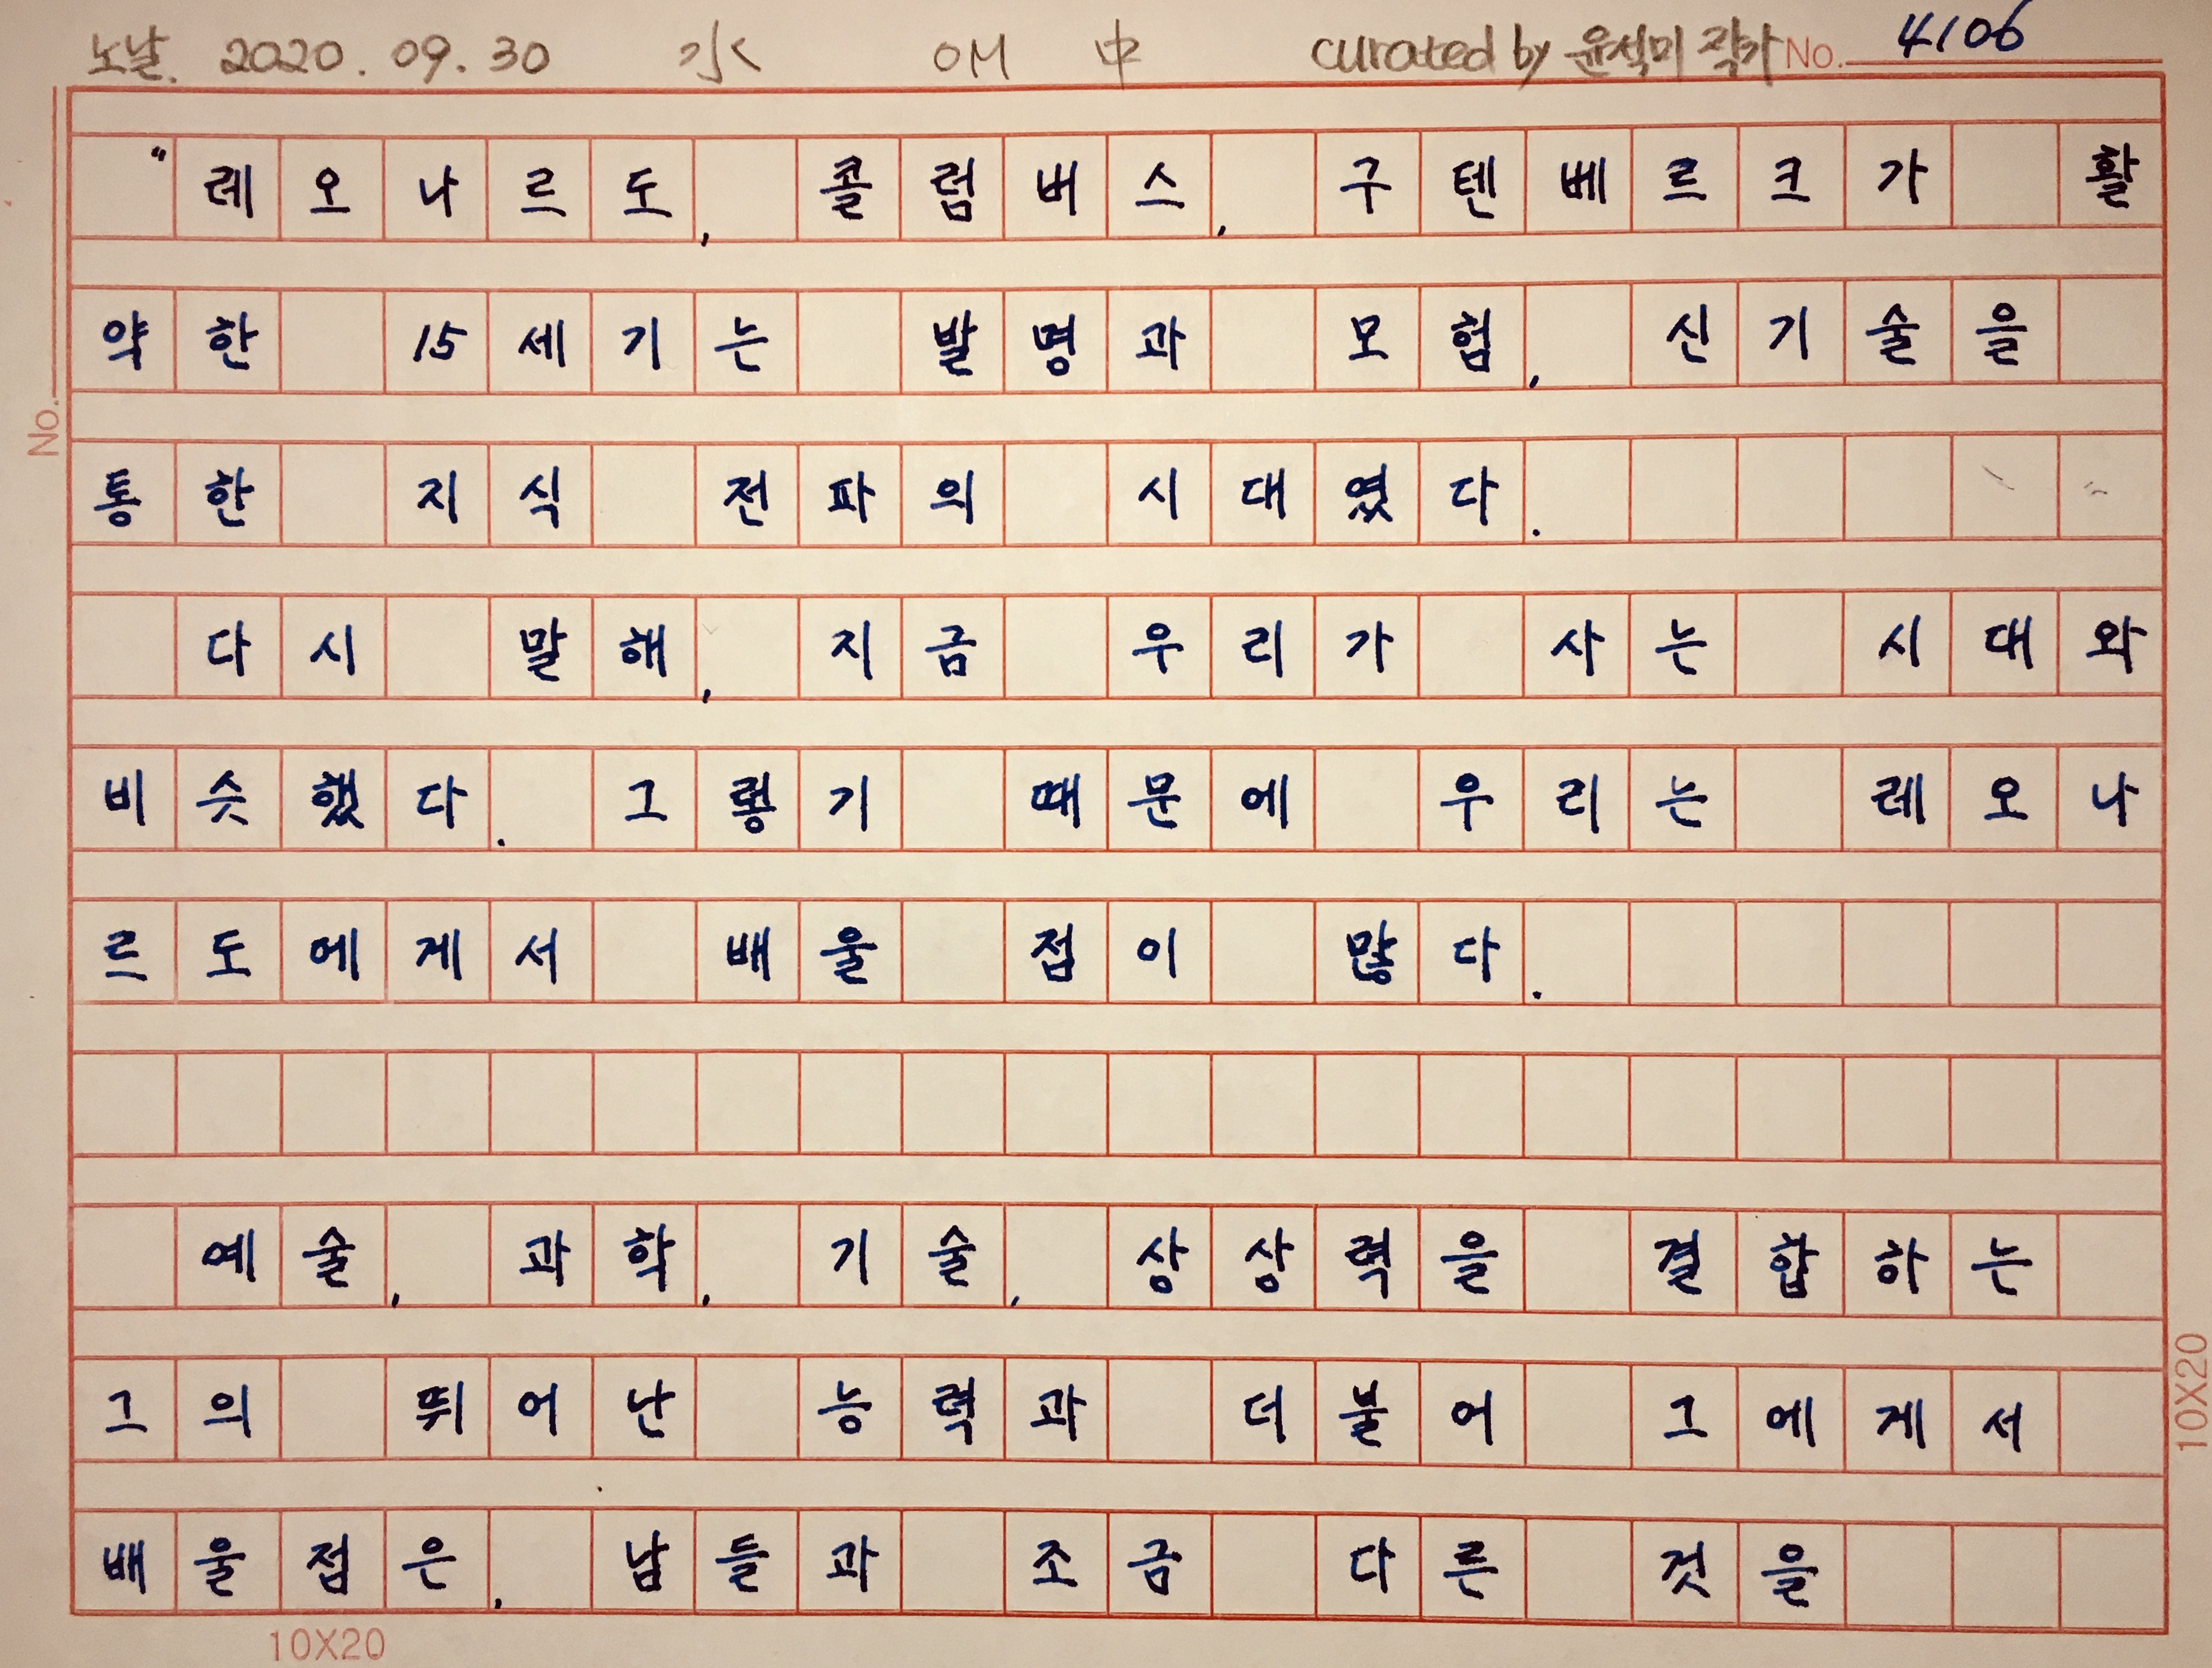 노날. 2020. 09. 30 水 OM 中 curated by 윤석미 작가 No. 4106
“레오나르도, 콜럼버스, 구텐베르크가 활
약한 15세기는 발명과 모험, 신기술을
No.
통한 지식 전파의 시대였다.
다시 말해, 지금 우리가 사는 시대와
비슷했다. 그렇기 때문에 우리는 레오나
르도에게서 배울 점이 많다.
예술, 과학, 기술, 상상력을 결합하는
그의 뛰어난 능력과 더불어 그에게서
배울점은, 남들과 조금 다른 것을
10X20
10X20